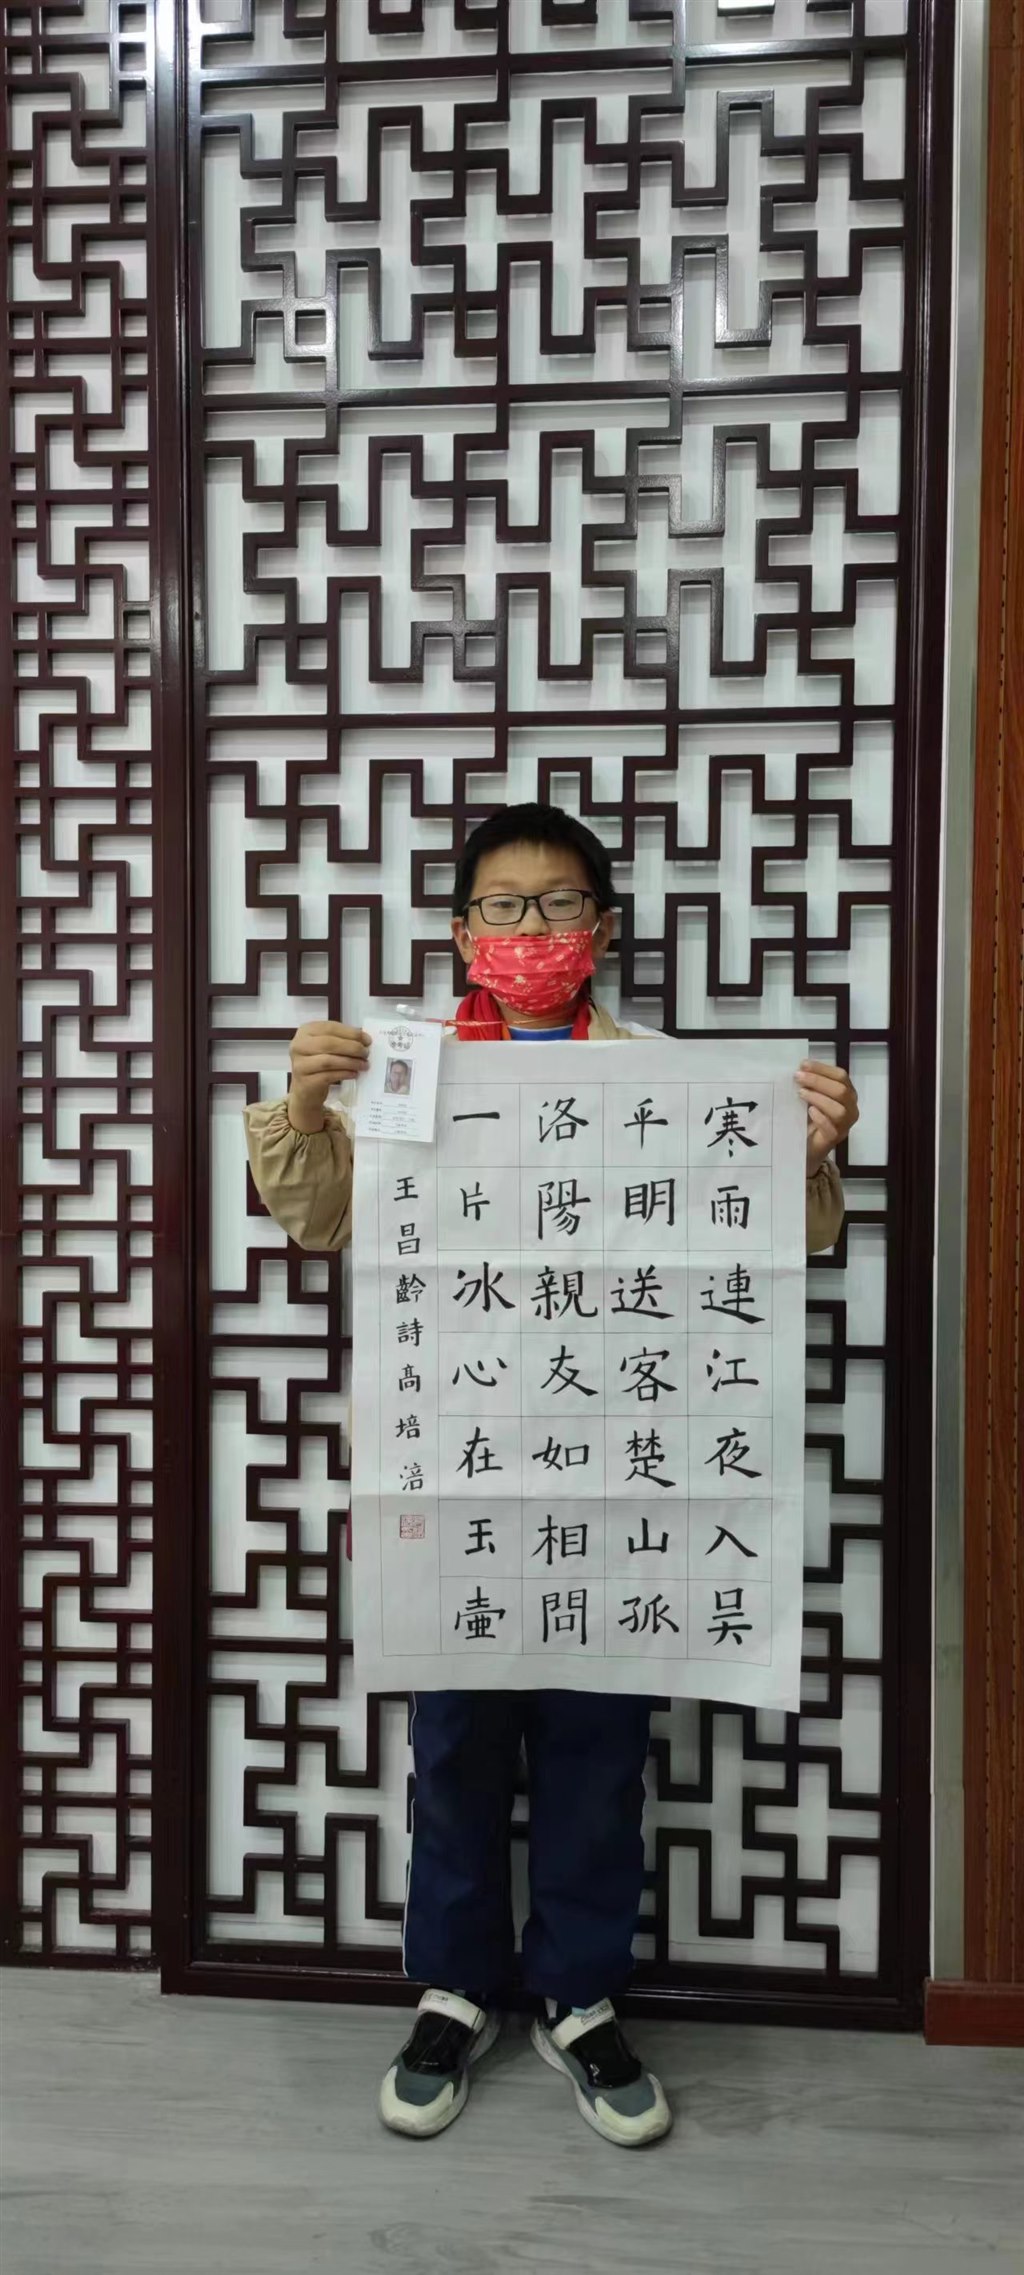 寒雨連江夜入吴
平明送客楚山孤
洛陽親友如相問
一片冰心在玉壷
王昌齡詩高培涪